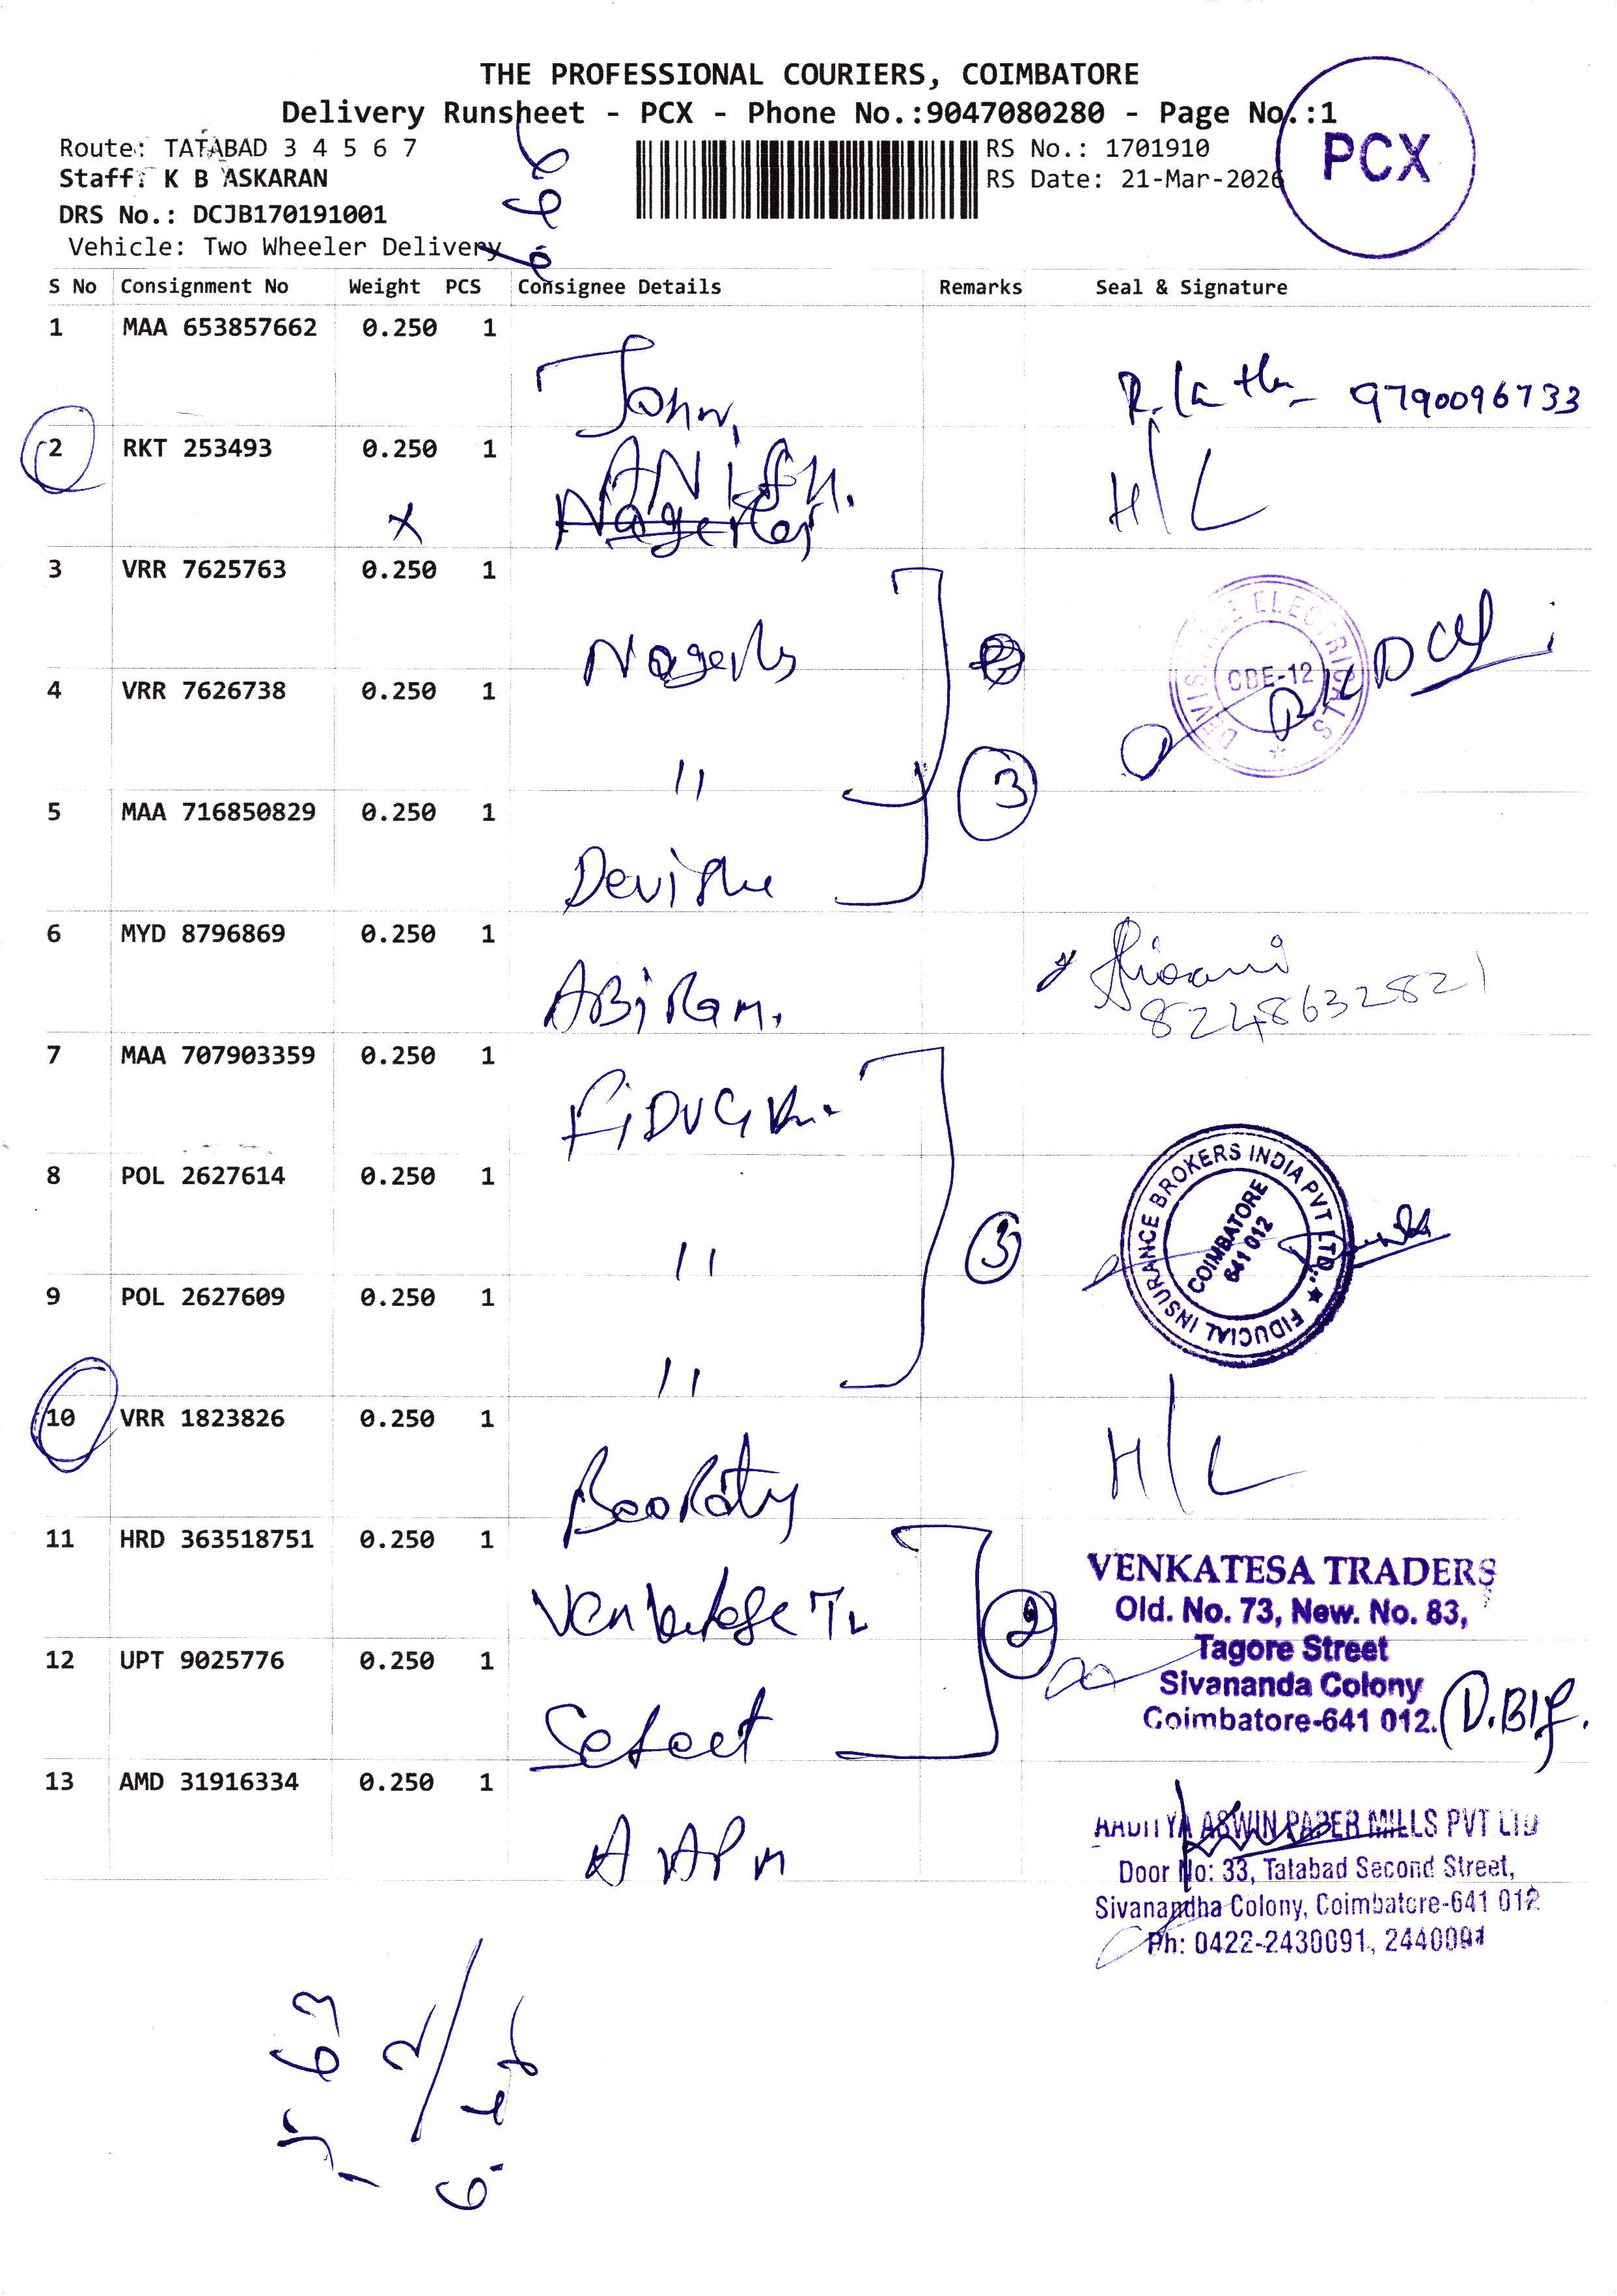 THE PROFESSIONAL COURIERS, COIMBATORE
Delivery Runsheet - PCX - Phone No.:9047080280 - Page No.:1
PCX
Route: TATABAD 3 4 5 6 7
RS No.: 1701910
Staff: K B ASKARAN
RS Date: 21-Mar-2026
DRS No.: DCJB170191001
Vehicle: Two Wheeler Delivery
S No Consignment No Weight PCS Consignee Details Remarks Seal & Signature
1 MAA 653857662 0.250 1
John,
9790096733
2 RKT 253493 0.250 1
H/L
X
3 VRR 7625763 0.250 1
DEVISHREE ELECTRICALS
CBE-12
4 VRR 7626738 0.250 1
"
3
5 MAA 716850829 0.250 1
6 MYD 8796869 0.250 1
ABiRam.
82248632821
7 MAA 707903359 0.250 1
8 POL 2627614 0.250 1
"
3
FIDUCIAL INSURANCE BROKERS INDIA PVT LTD.,
COIMBATORE
641 012
9 POL 2627609 0.250 1
"
10 VRR 1823826 0.250 1
H/L
11 HRD 363518751 0.250 1
2
VENKATESA TRADERS
Old. No. 73, New. No. 83,
Tagore Street
Sivananda Colony
Coimbatore-641 012.
12 UPT 9025776 0.250 1
13 AMD 31916334 0.250 1
AADITYA ASWIN PAPER MILLS PVT LTD
Door No: 33, Tatabad Second Street,
Sivanandha Colony, Coimbatore-641 012
Ph: 0422-2430091, 2440091